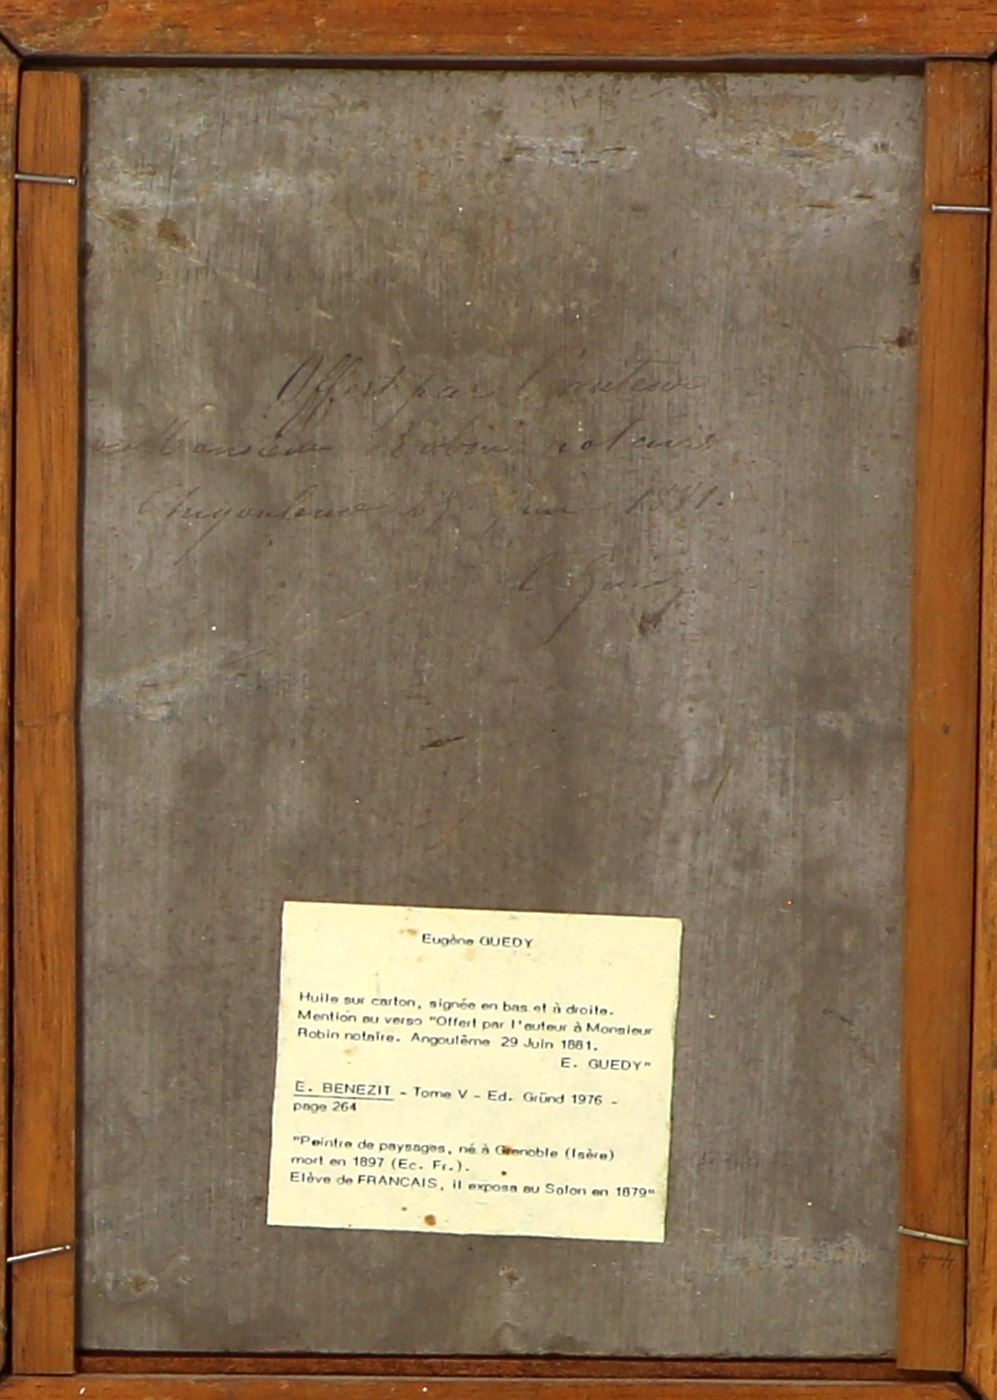 Offert par l'auteur
à Monsieur Robin notaire
Angoulême 29 Juin 1881.
E. Guedy
Eugène GUEDY
Huile sur carton, signée en bas et à droite.
Mention au verso "Offert par l'auteur à Monsieur
Robin notaire. Angoulême 29 Juin 1881.
E. GUEDY"
E. BENEZIT - Tome V - Ed. Gründ 1976 -
page 264
"Peintre de paysages, né à Grenoble (Isère)
mort en 1897 (Ec. Fr.).
Elève de FRANCAIS, il exposa au Salon en 1879"